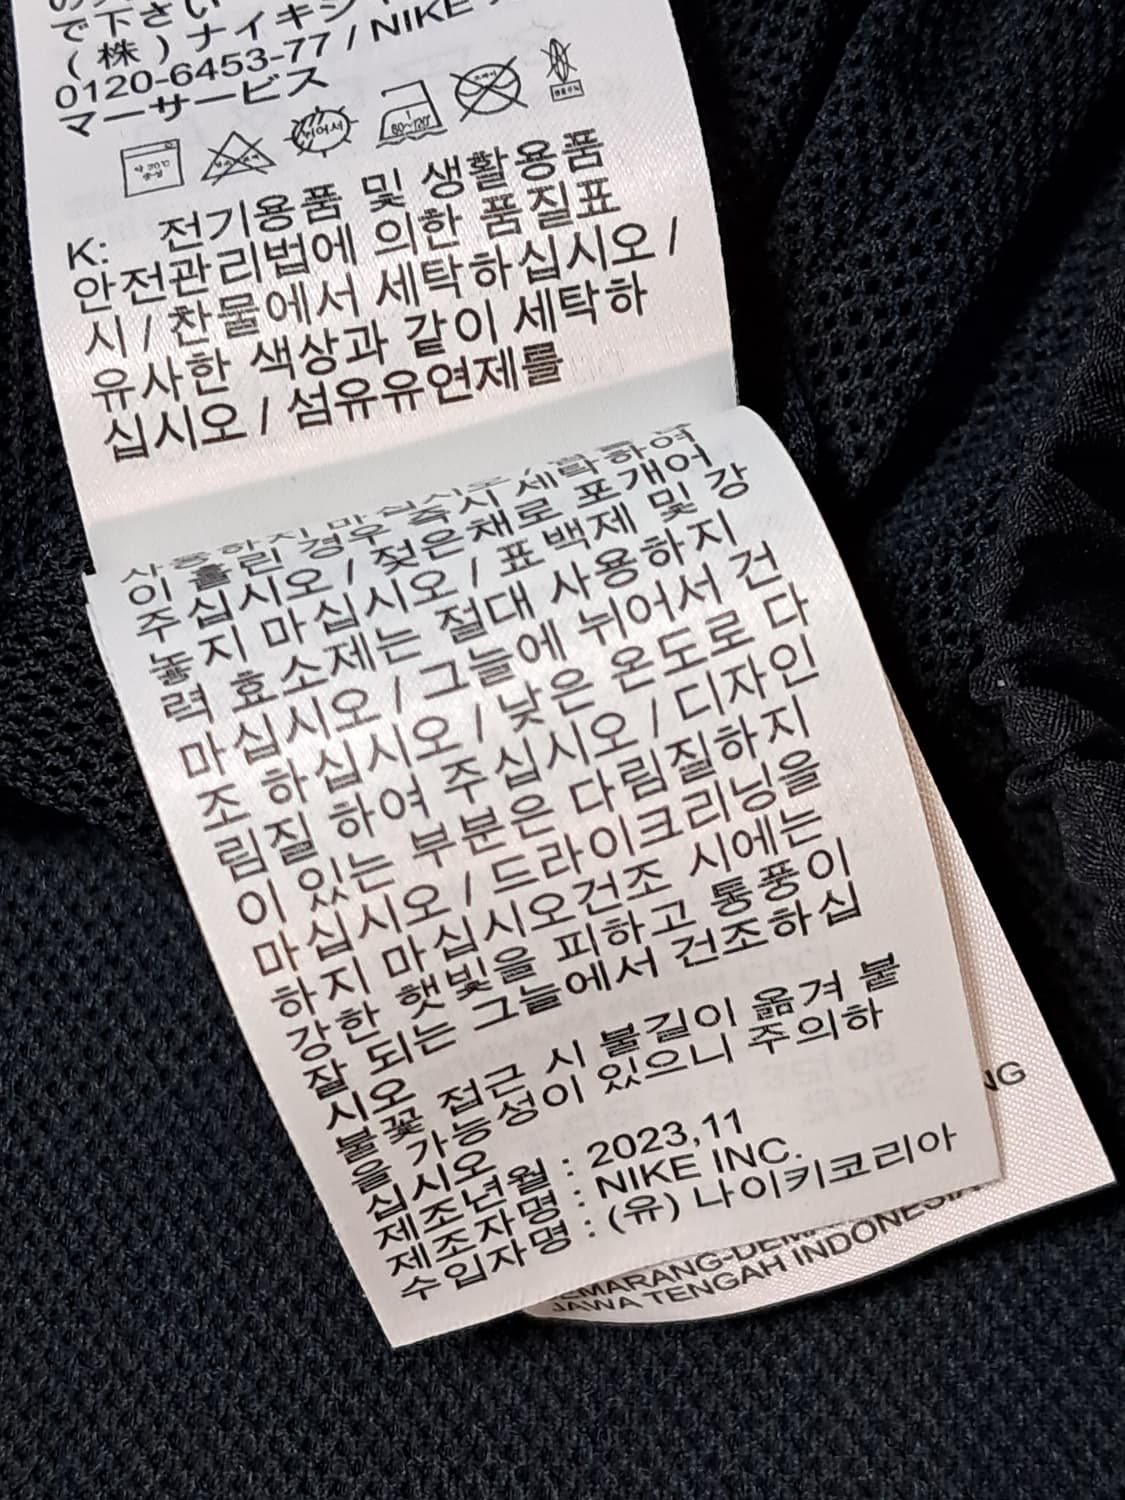 で下さい
(株)ナイキジ
0120-6453-77 / NIKE
マーサービス
뉘어서
80~120℃
K: 전기용품 및 생활용품
안전관리법에 의한 품질표
시 / 찬물에서 세탁하십시오 /
유사한 색상과 같이 세탁하
십시오 / 섬유유연제를
사용하지 마십시오 / 땀을 흘려
이 흘린 경우 즉시 세탁하여
주십시오 / 젖은채로 포개어
놓지 마십시오 / 표백제 및 강
력 효소제는 절대 사용하지
마십시오 / 그늘에 뉘어서 건
조 하십시오 / 낮은 온도로 다
림질 하여 주십시오 / 디자인
이 있는 부분은 다림질하지
마십시오 / 드라이크리닝을
하지 마십시오건조 시에는
강한 햇빛을 피하고 통풍이
잘 되는 그늘에서 건조하십
시오
불꽃 접근 시 불길이 옮겨 붙
을 가능성이 있으니 주의하
십시오
제조년월 : 2023,11
제조자명 : NIKE INC.
수입자명 : (유) 나이키코리아
NG
EMARANG-DEM
JAWA TENGAH INDONESIA